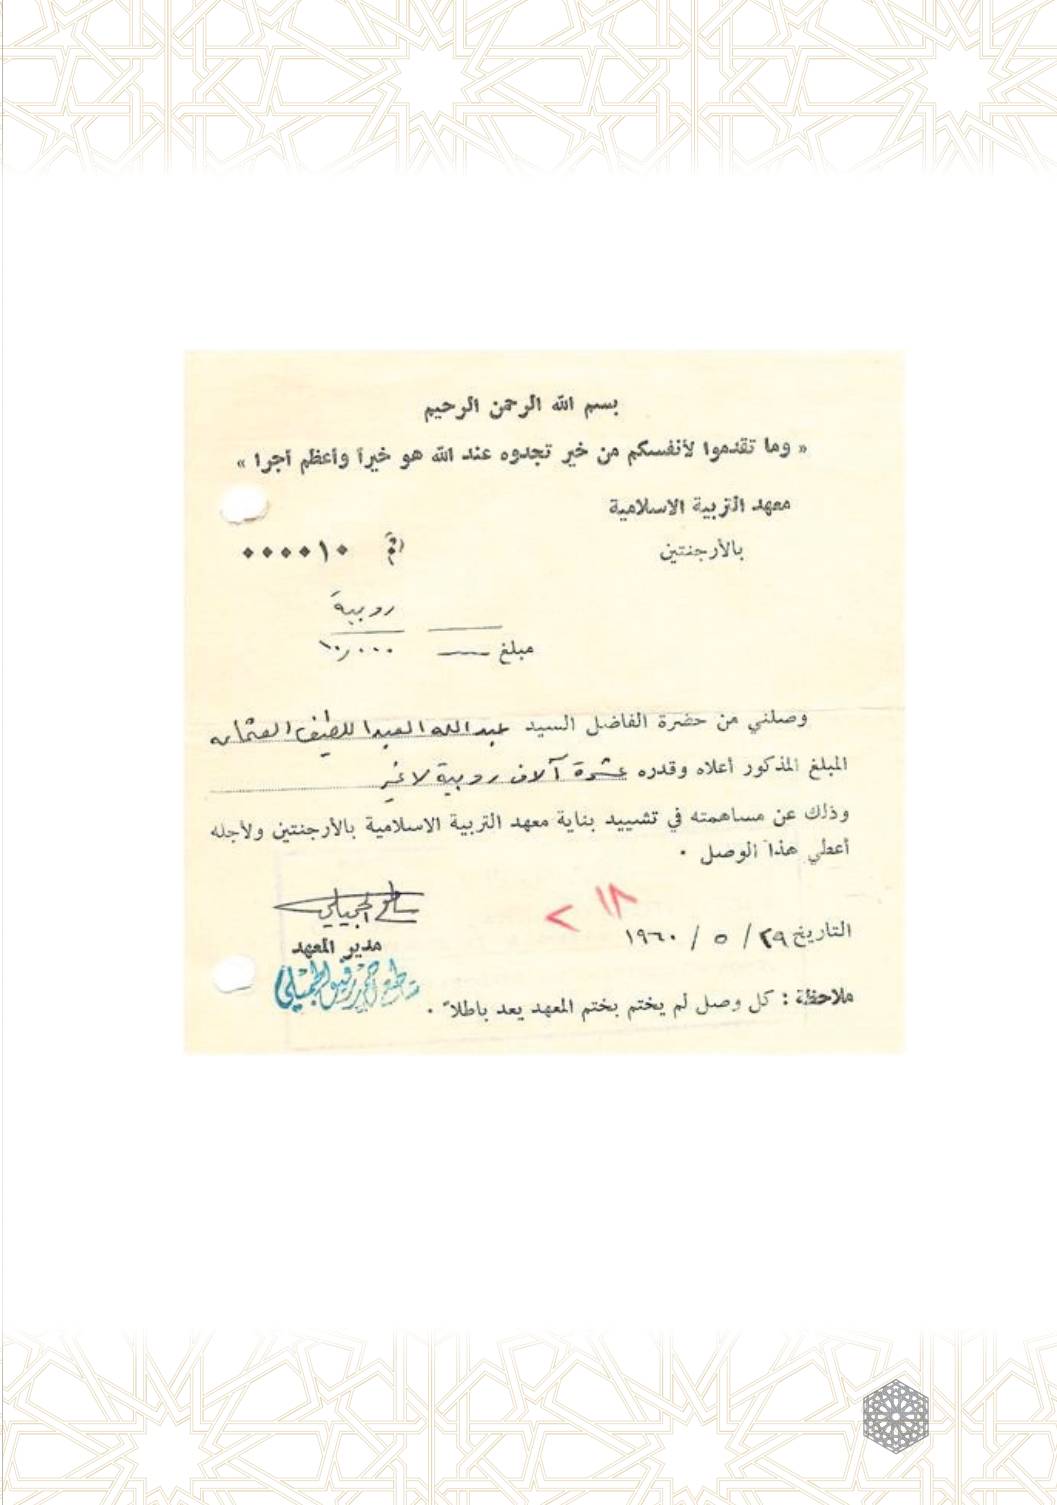 بسم الله الرحمن الرحيم
« وما تقدموا لأنفسكم من خير تجدوه عند الله هو خيراً وأعظم أجرا »
معهد التربية الاسلامية
بالأرجنتين
رقم ٠٠٠٠١٠
روبية
مبلغ ١٠,٠٠٠
وصلني من حضرة الفاضل السيد عبدالله العبداللطيف العثمان
المبلغ المذكور أعلاه وقدره عشرة آلاف روبية لا غير
وذلك عن مساهمته في تشييد بناية معهد التربية الاسلامية بالأرجنتين ولأجله
أعطي هذا الوصل .
٧ ١٨
التاريخ ٢٩ / ٥ / ١٩٦٠
ساطع الجميلي
مدير المعهد
ساطع أحمد رفيق الجميلي
ملاحظة : كل وصل لم يختم بختم المعهد يعد باطلاً .